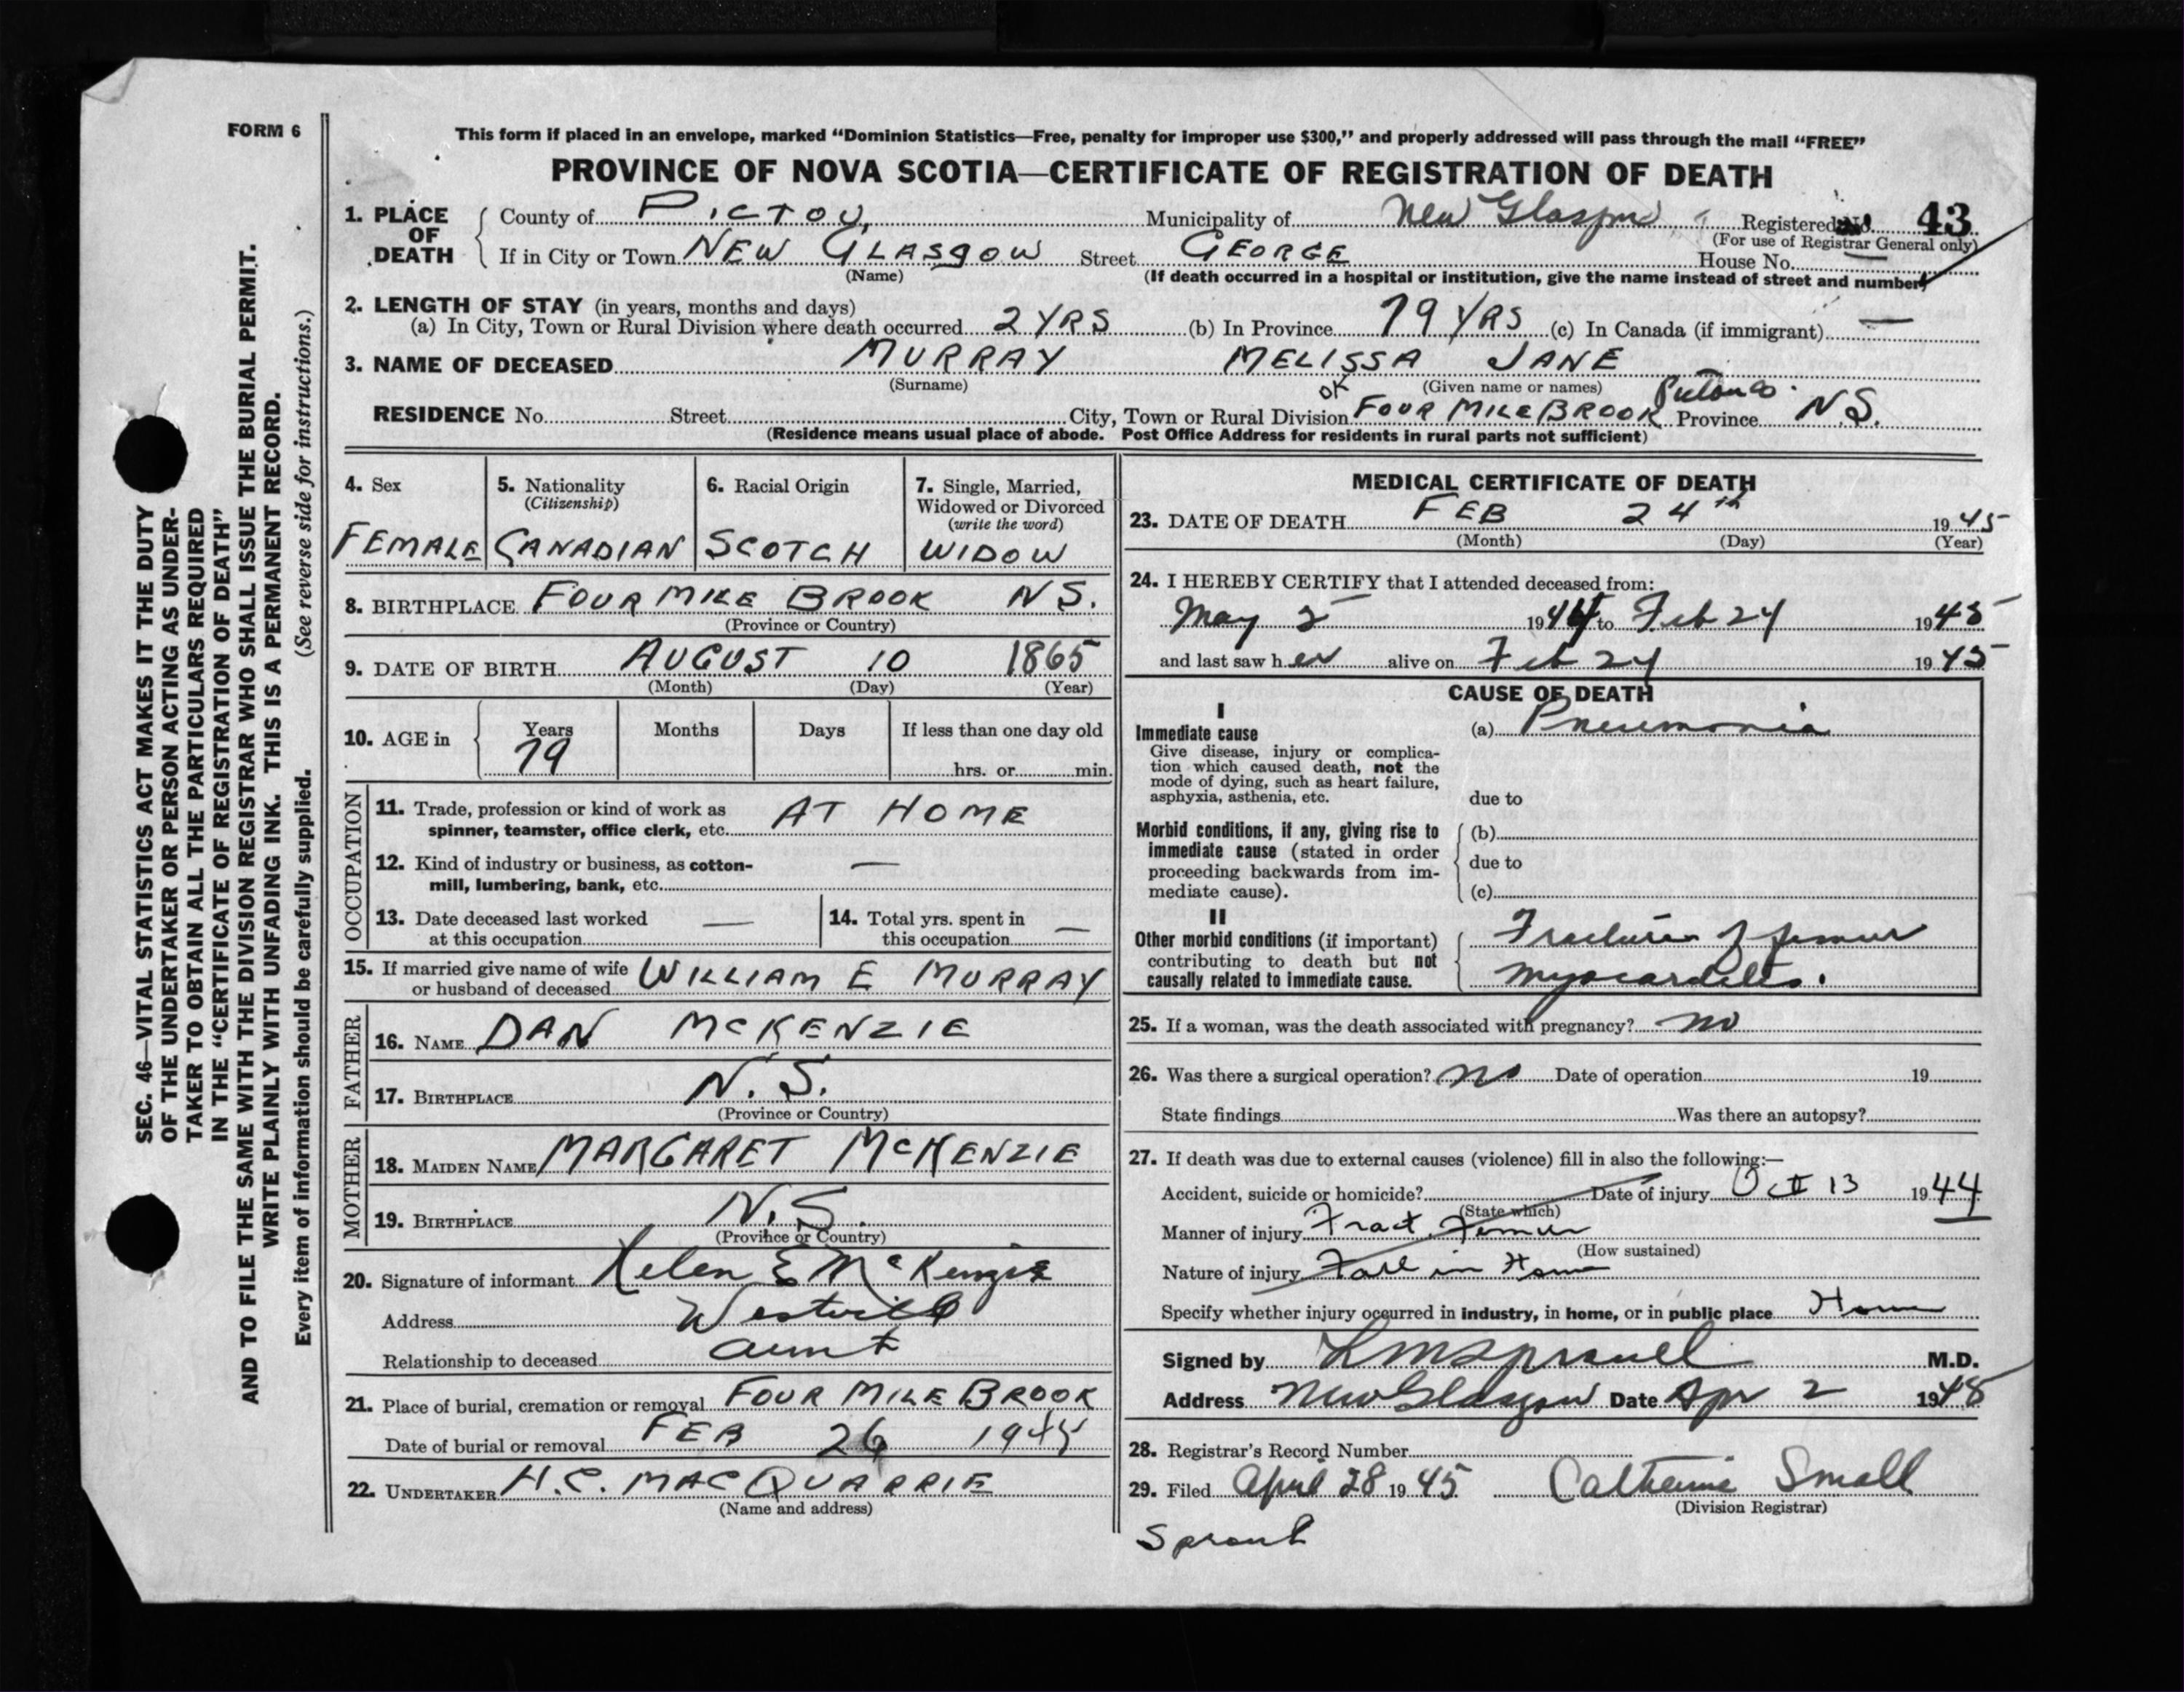 FORM 6
This form if placed in an envelope, marked "Dominion Statistics—Free, penalty for improper use $300," and properly addressed will pass through the mail "FREE"
PROVINCE OF NOVA SCOTIA—CERTIFICATE OF REGISTRATION OF DEATH
1. PLACE OF DEATH County of PICTOU, Municipality of New Glasgow Registered No. 43
(For use of Registrar General only)
If in City or Town NEW GLASGOW Street GEORGE House No. —
(Name) (If death occurred in a hospital or institution, give the name instead of street and number)
2. LENGTH OF STAY (in years, months and days)
(a) In City, Town or Rural Division where death occurred 2 YRS (b) In Province 79 YRS (c) In Canada (if immigrant) —
3. NAME OF DECEASED MURRAY MELISSA JANE
(Surname) OK (Given name or names) Pictou Co.
RESIDENCE No. Street City, Town or Rural Division FOUR MILE BROOK Province N.S.
(Residence means usual place of abode. Post Office Address for residents in rural parts not sufficient)
4. Sex FEMALE
5. Nationality (Citizenship) CANADIAN
6. Racial Origin SCOTCH
7. Single, Married, Widowed or Divorced (write the word) WIDOW
8. BIRTHPLACE FOUR MILE BROOK N.S.
(Province or Country)
9. DATE OF BIRTH AUGUST 10 1865
(Month) (Day) (Year)
10. AGE in Years 79 Months Days If less than one day old
hrs. or min.
OCCUPATION
11. Trade, profession or kind of work as spinner, teamster, office clerk, etc. AT HOME
12. Kind of industry or business, as cotton-mill, lumbering, bank, etc. —
13. Date deceased last worked at this occupation —
14. Total yrs. spent in this occupation —
15. If married give name of wife or husband of deceased WILLIAM E MURRAY
FATHER
16. NAME DAN McKENZIE
17. BIRTHPLACE N.S.
(Province or Country)
MOTHER
18. MAIDEN NAME MARGARET McKENZIE
19. BIRTHPLACE N.S.
(Province or Country)
20. Signature of informant Helen E McKenzie
Address Westville
Relationship to deceased aunt
21. Place of burial, cremation or removal FOUR MILE BROOK
Date of burial or removal FEB 26 1945
22. UNDERTAKER H.C. MACQUARRIE
(Name and address)
MEDICAL CERTIFICATE OF DEATH
23. DATE OF DEATH FEB 24th 1945
(Month) (Day) (Year)
24. I HEREBY CERTIFY that I attended deceased from:
May 2 1944 to Feb 24 1945
and last saw her alive on Feb 24 1945
CAUSE OF DEATH
I
Immediate cause (a) Pneumonia
Give disease, injury or complica-
tion which caused death, not the
mode of dying, such as heart failure,
asphyxia, asthenia, etc.
due to
Morbid conditions, if any, giving rise to (b)
immediate cause (stated in order
proceeding backwards from im- due to
mediate cause). (c)
II
Other morbid conditions (if important) Fracture of femur
contributing to death but not
causally related to immediate cause. myocarditis.
25. If a woman, was the death associated with pregnancy? no
26. Was there a surgical operation? no Date of operation 19
State findings Was there an autopsy?
27. If death was due to external causes (violence) fill in also the following:—
Accident, suicide or homicide? Date of injury Oct 13 1944
(State which)
Manner of injury Fract. Femur
(How sustained)
Nature of injury Fall in Home
Specify whether injury occurred in industry, in home, or in public place Home
Signed by M.D.
Address New Glasgow Date Apr 2 1945
28. Registrar's Record Number
29. Filed April 28 1945 Catherine Small
(Division Registrar)
SEC. 46—VITAL STATISTICS ACT MAKES IT THE DUTY
OF THE UNDERTAKER OR PERSON ACTING AS UNDER-
TAKER TO OBTAIN ALL THE PARTICULARS REQUIRED
IN THE "CERTIFICATE OF REGISTRATION OF DEATH"
AND TO FILE THE SAME WITH THE DIVISION REGISTRAR WHO SHALL ISSUE THE BURIAL PERMIT.
WRITE PLAINLY WITH UNFADING INK. THIS IS A PERMANENT RECORD.
Every item of information should be carefully supplied. (See reverse side for instructions.)